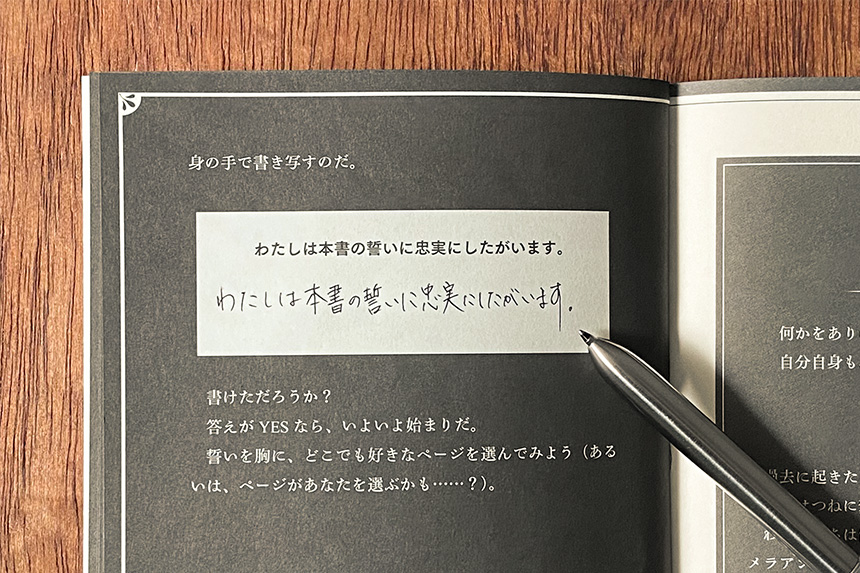 身の手で書き写すのだ。
わたしは本書の誓いに忠実にしたがいます。
わたしは本書の誓いに忠実にしたがいます。
書けただろうか？
答えが YES なら、いよいよ始まりだ。
誓いを胸に、どこでも好きなページを選んでみよう（ある
いは、ページがあなたを選ぶかも……？）。
何かをあり
自分自身も
過去に起きた
つねに
は
メラアン